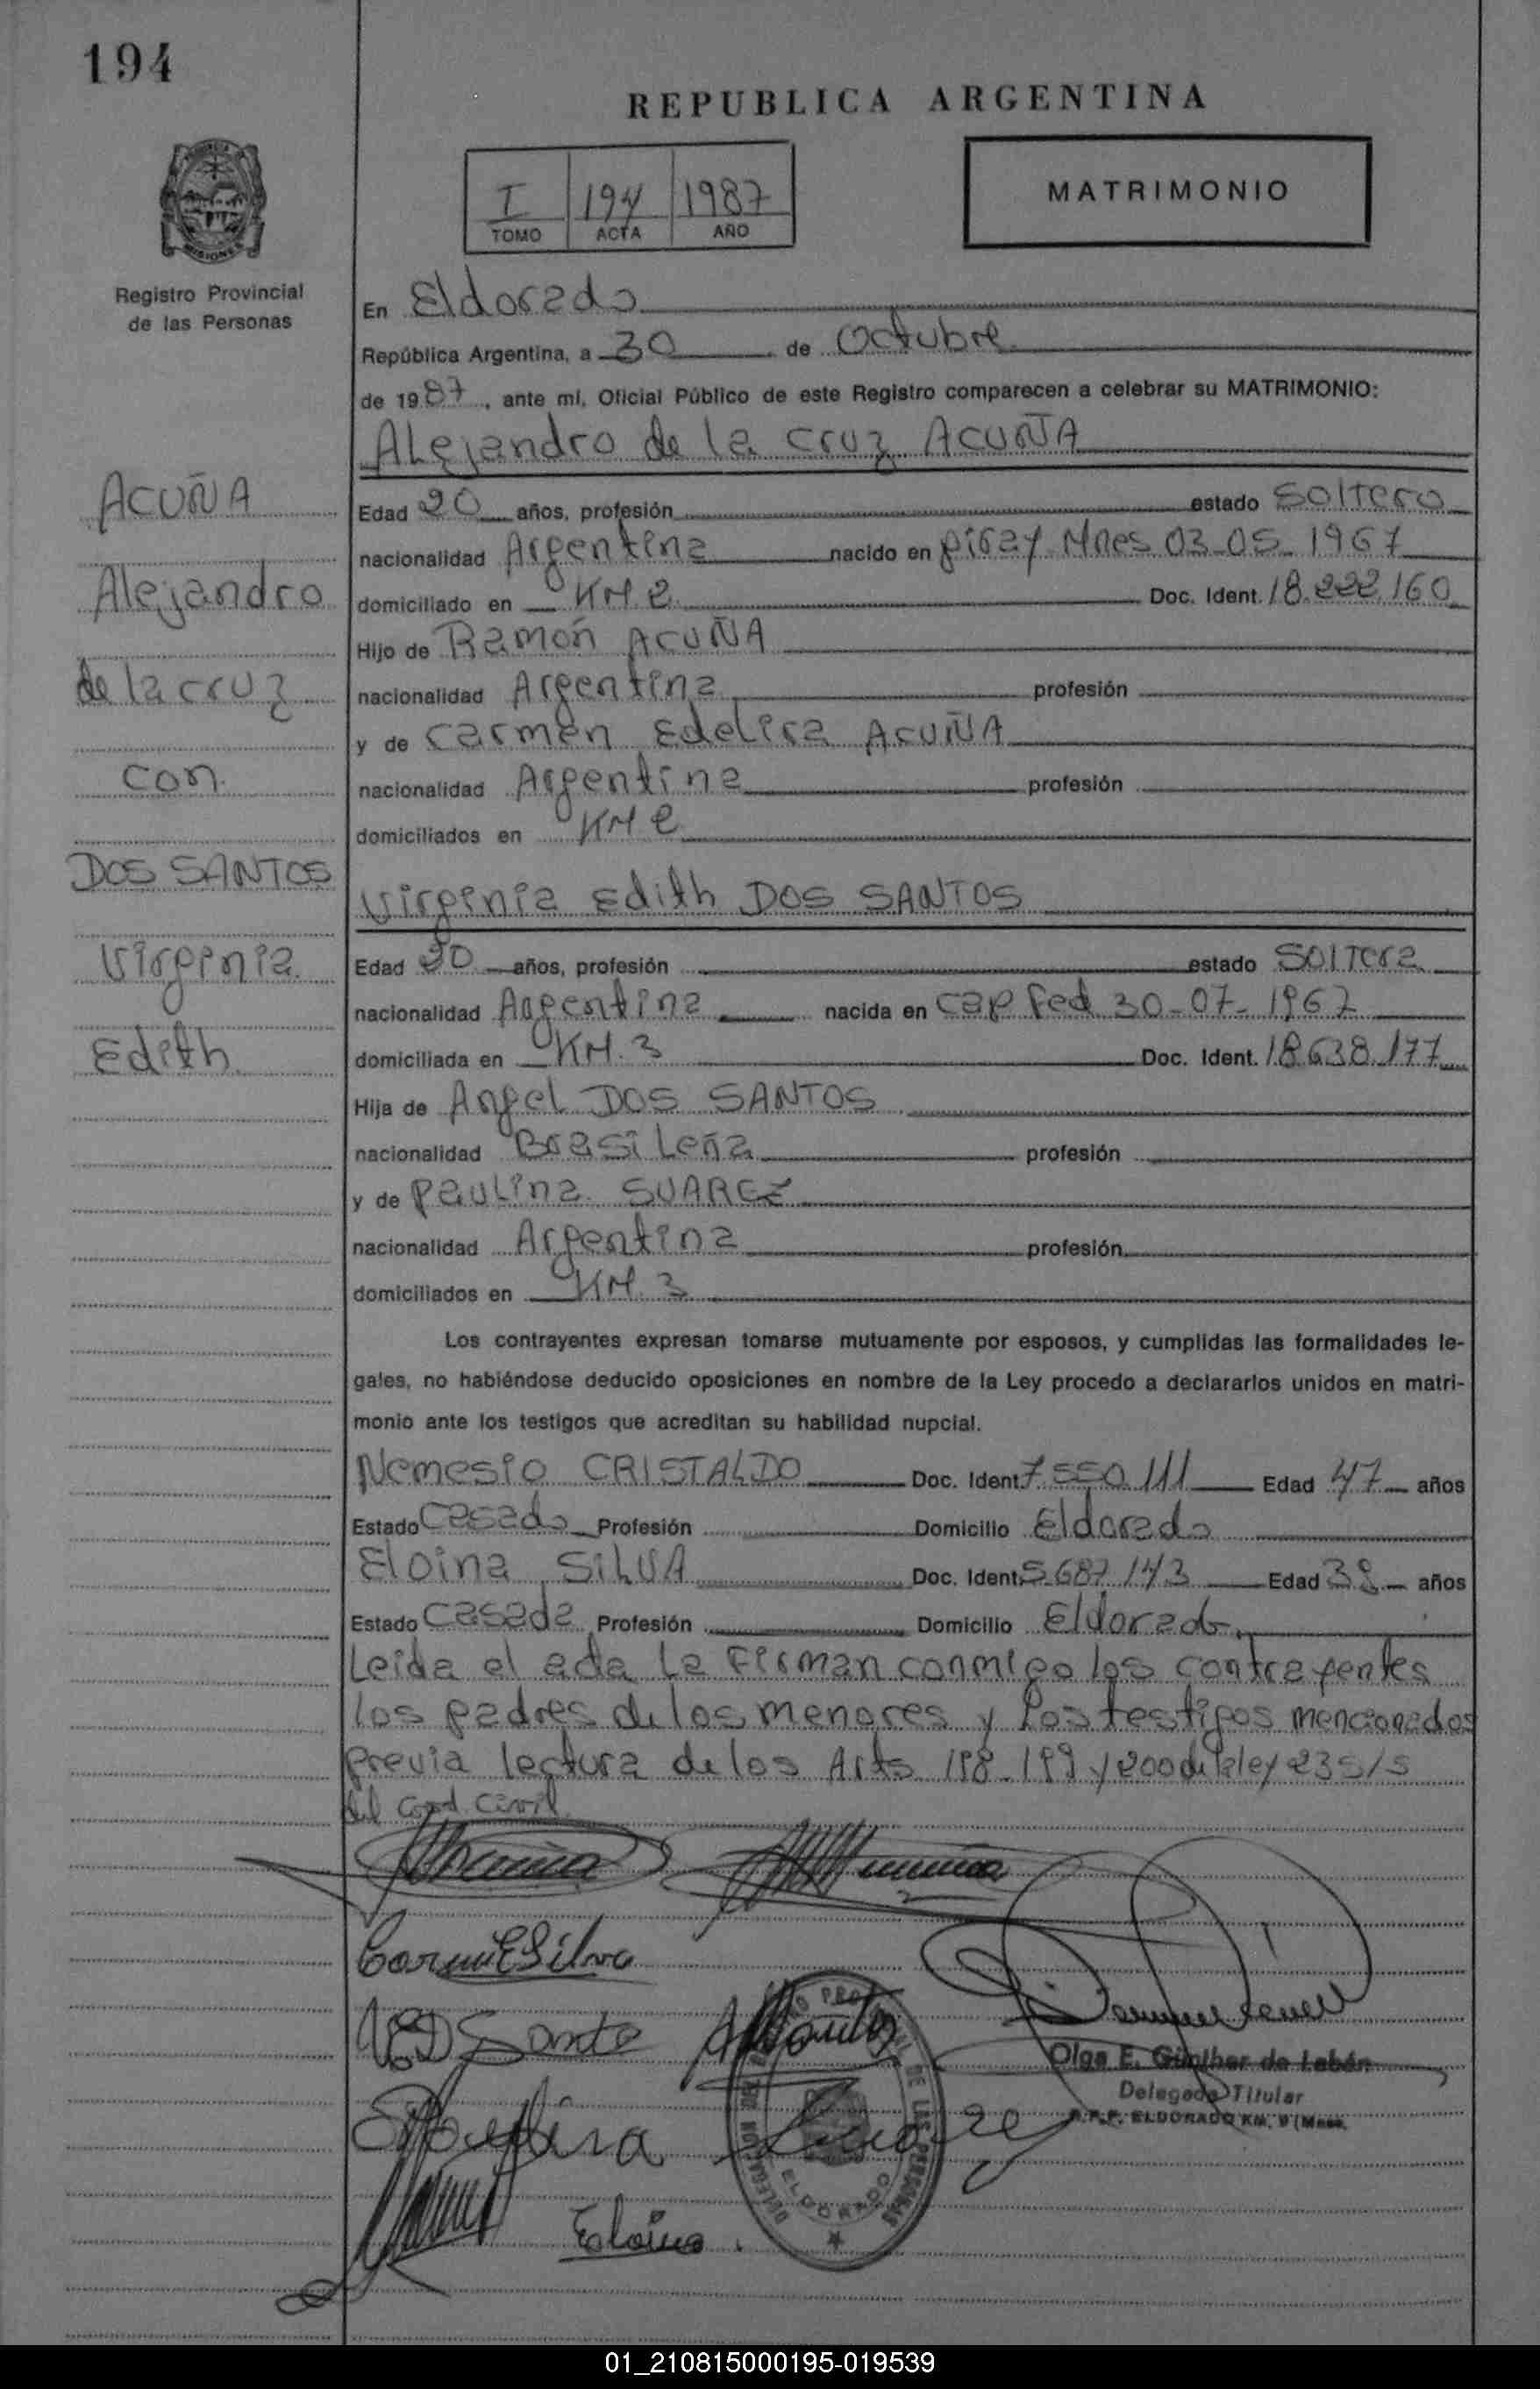 194
REPUBLICA ARGENTINA
I 194 1987
TOMO ACTA AÑO
MATRIMONIO
MISIONES
Registro Provincial
de las Personas
En Eldorado
República Argentina, a 30 de Octubre
de 1987, ante mi, Oficial Público de este Registro comparecen a celebrar su MATRIMONIO:
Alejandro de la cruz ACUÑA
ACUÑA
Alejandro
de la cruz
con
DOS SANTOS
Virginia
Edith
Edad 20 años, profesión estado soltero
nacionalidad Argentina nacido en piray Mnes 03-05-1967
domiciliado en KM 2 Doc. Ident. 18.222.160
Hijo de Ramón ACUÑA
nacionalidad Argentina profesión
y de Carmen Edelira ACUÑA
nacionalidad Argentina profesión
domiciliados en KM 2
Virginia Edith DOS SANTOS
Edad 20 años, profesión estado soltera
nacionalidad Argentina nacida en cap Fed 30-07-1967
domiciliada en KM. 3 Doc. Ident. 18.638.177
Hija de Angel DOS SANTOS
nacionalidad Brasileña profesión
y de Paulina SUAREZ
nacionalidad Argentina profesión
domiciliados en KM. 3
Los contrayentes expresan tomarse mutuamente por esposos, y cumplidas las formalidades le-
gales, no habiéndose deducido oposiciones en nombre de la Ley procedo a declararlos unidos en matri-
monio ante los testigos que acreditan su habilidad nupcial.
Nemesio CRISTALDO Doc. Ident. 7.550.111 Edad 47 años
Estado Casado Profesión Domicilio Eldorado
Eloina SILVA Doc. Ident. 5.687.143 Edad 38 años
Estado Casada Profesión Domicilio Eldorado
Leida el acta la Firman conmigo los contrayentes
los padres de los menores y los testigos mencionados
previa lectura de los Arts 198-199 y 200 de la ley 23515
del cod. civil.
Carmen E Silva
V E D Santo
Olga E. Günther de Lebán
Delegada Titular
R.P.P. ELDORADO KM. 9 (Mnes.
Eloina
ELDORADO
01_210815000195-019539